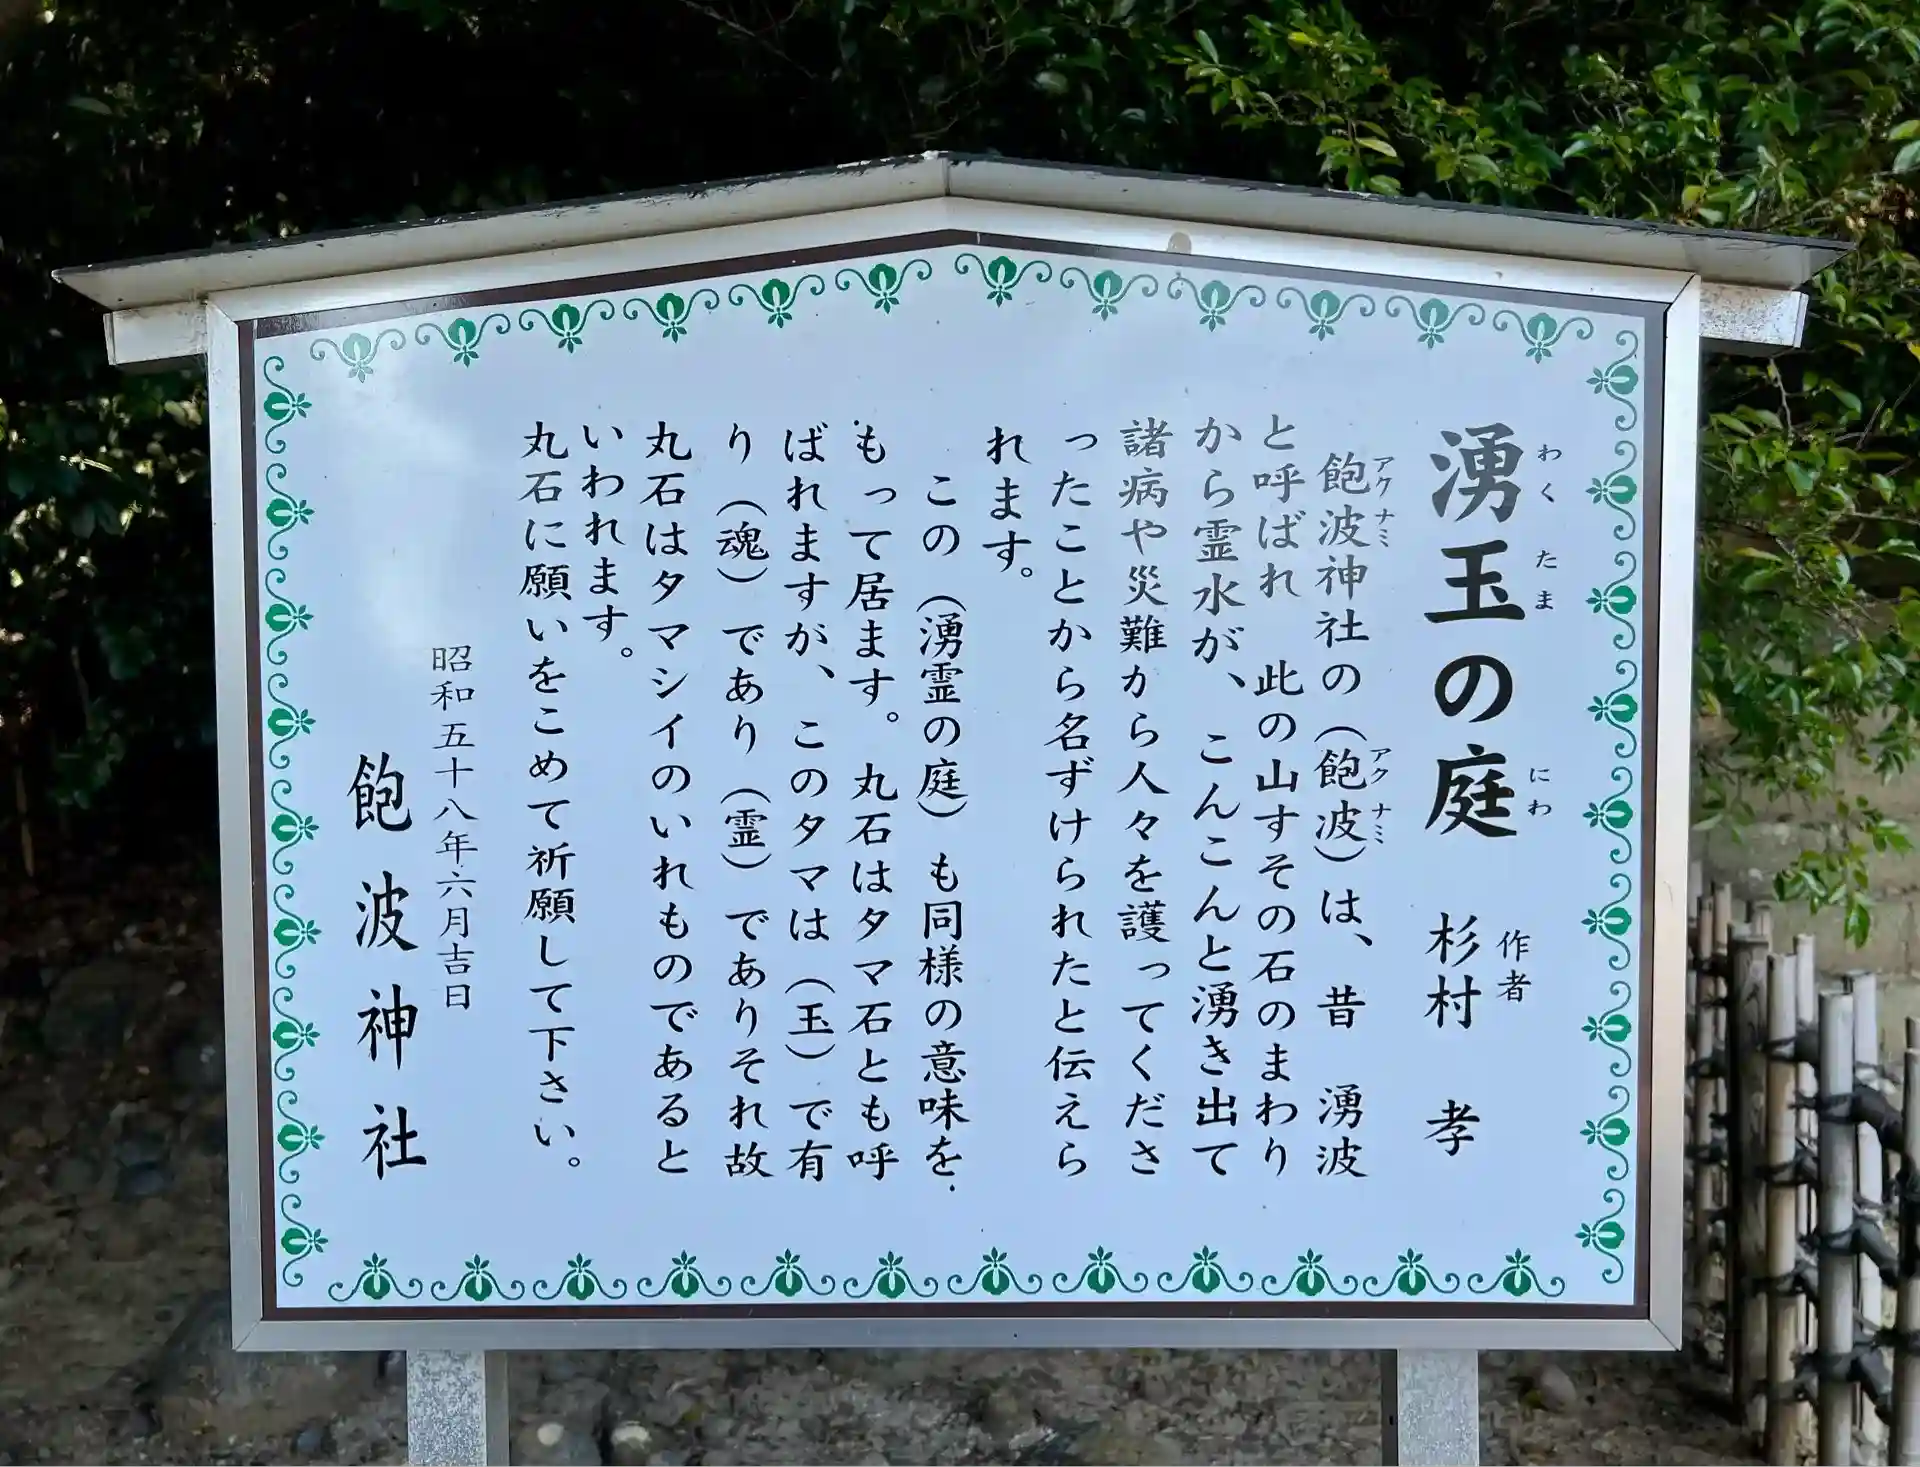 湧玉の庭
わく たま にわ
作者
杉村 孝
飽波神社の（飽波）は、昔 湧波
アク ナミ アク ナミ
と呼ばれ 此の山すその石のまわり
から霊水が、こんこんと湧き出て
諸病や災難から人々を護ってくださ
ったことから名ずけられたと伝えら
れます。
この（湧霊の庭）も同様の意味を
もって居ます。丸石はタマ石とも呼
ばれますが、このタマは（玉）で有
り（魂）であり（霊）でありそれ故
丸石はタマシイのいれものであると
いわれます。
丸石に願いをこめて祈願して下さい。
昭和五十八年六月吉日
飽波神社